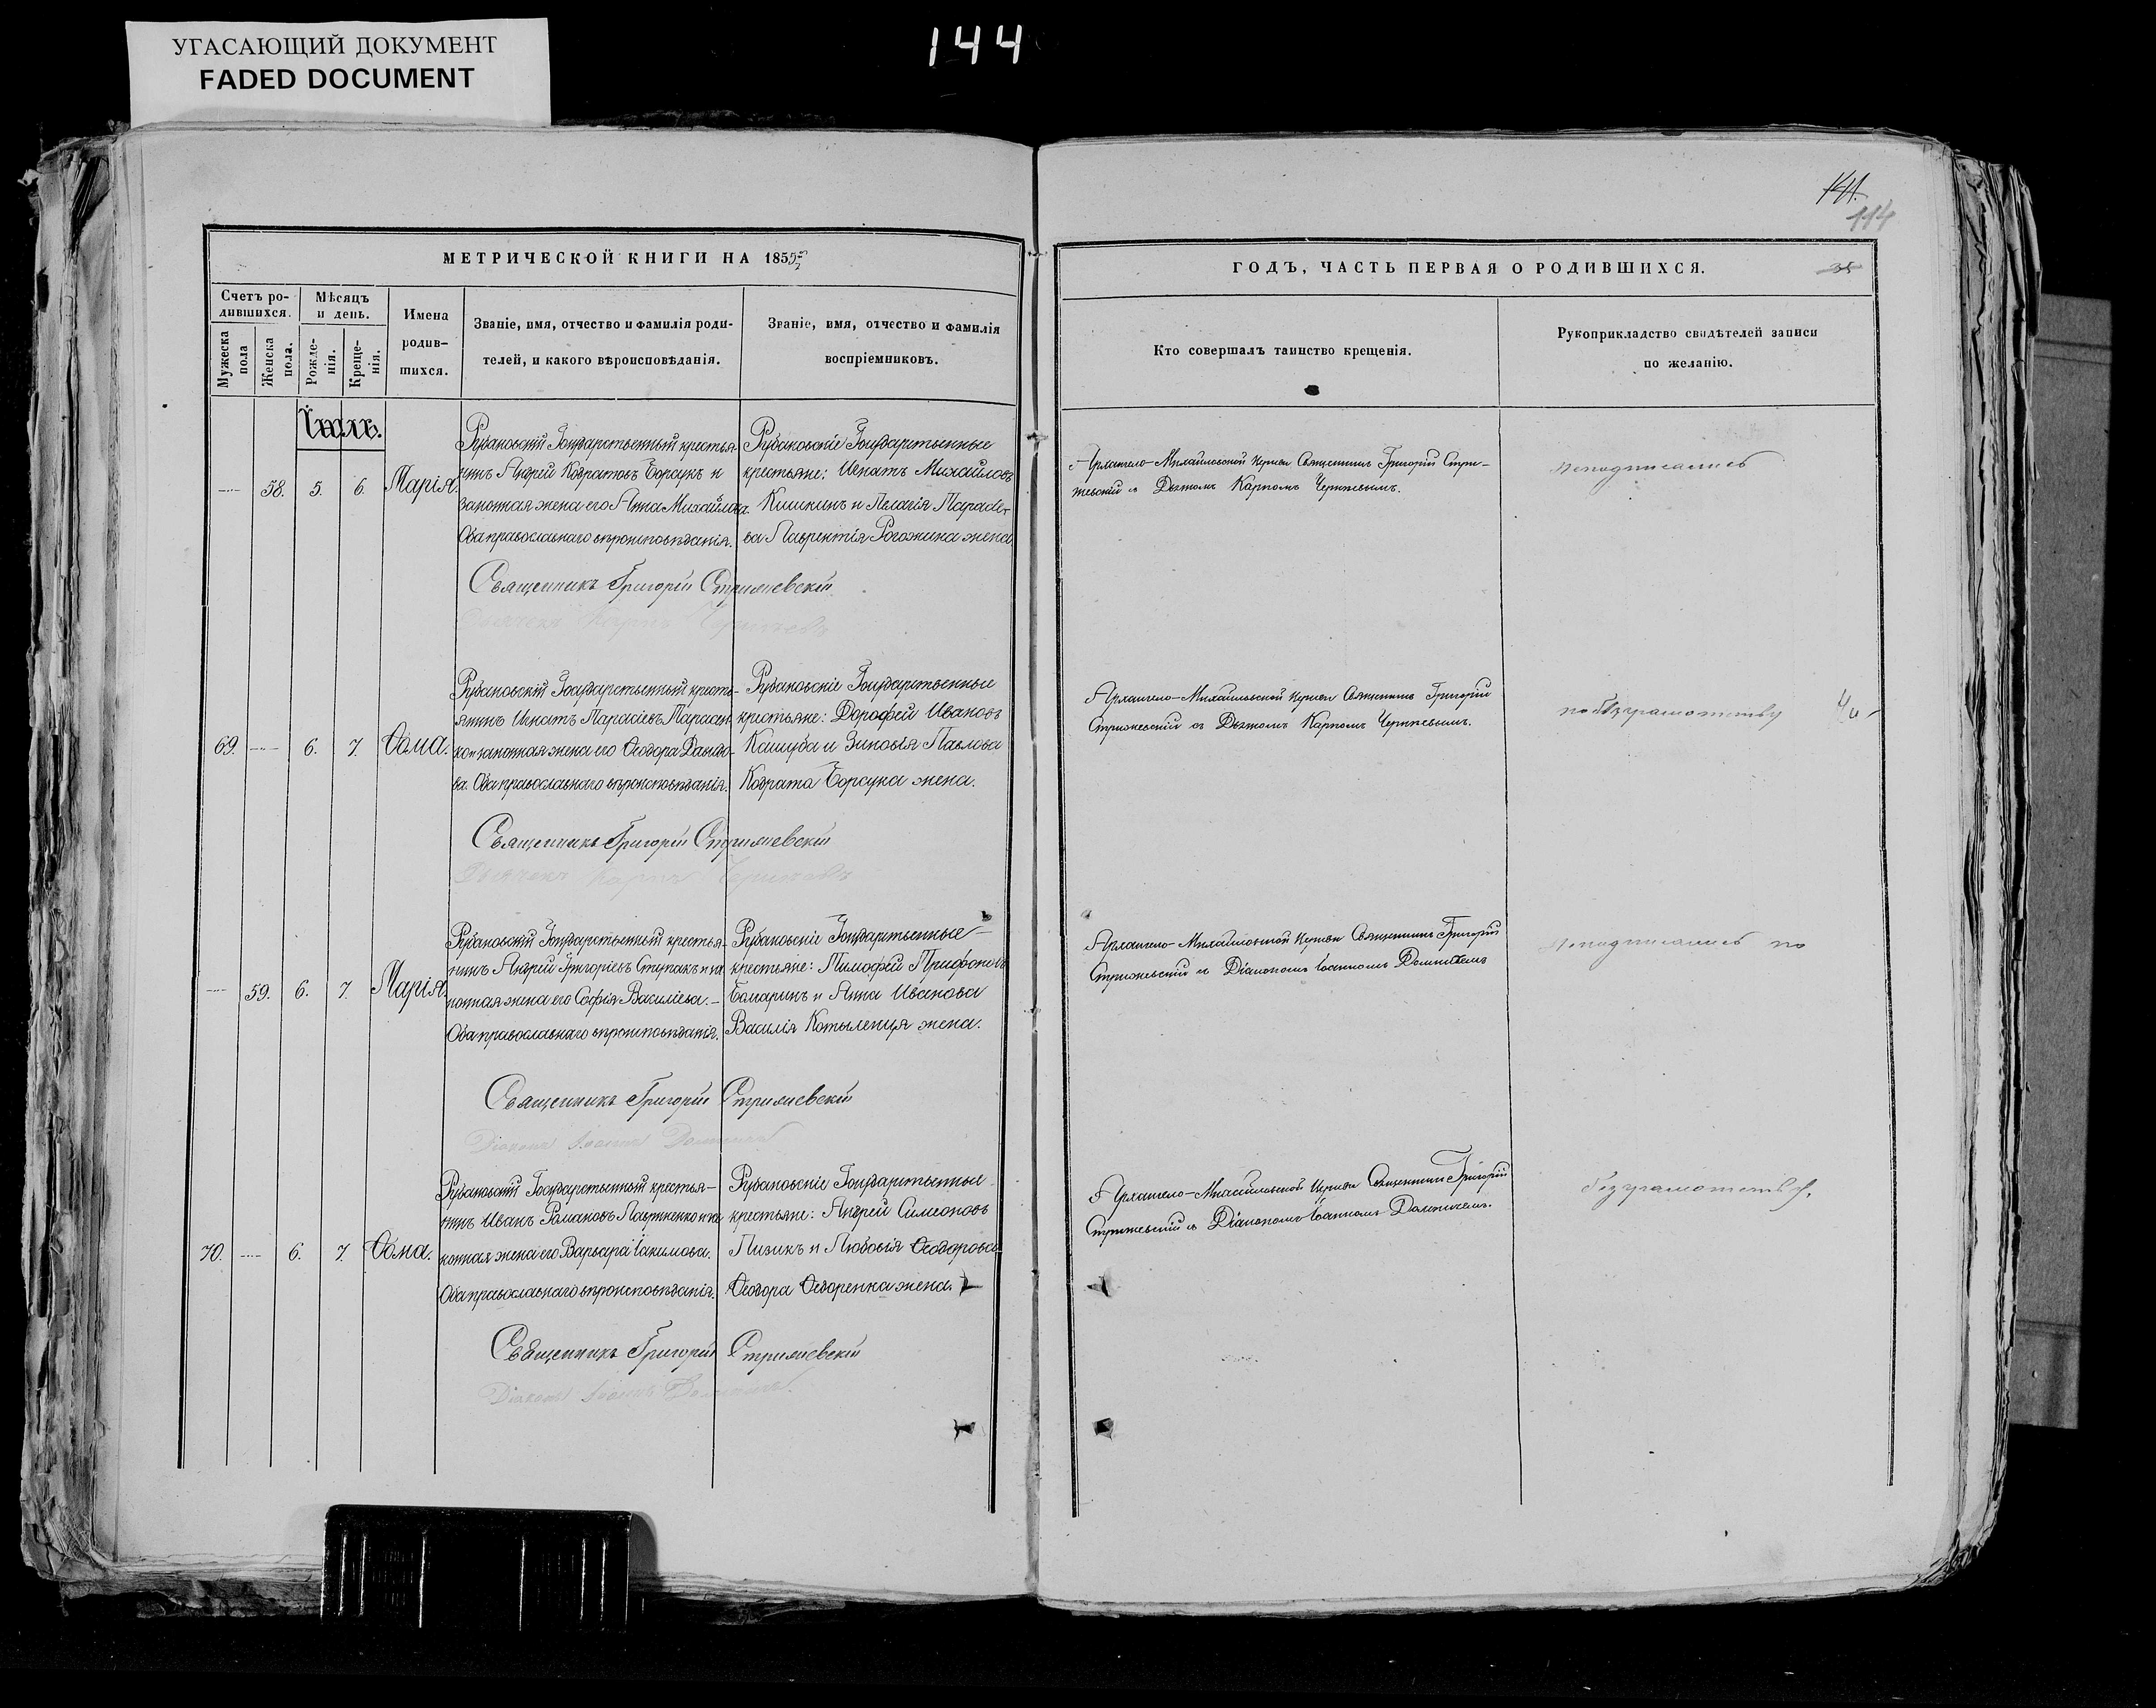 УГАСАЮЩИЙ ДОКУМЕНТ
FADED DOCUMENT
144
114
МЕТРИЧЕСКОЙ КНИГИ НА 185
Счетъ ро-
дившихся.
Мужеска
пола
Женска
пола.
Мѣсяцъ
и день.
Рожде-
нія.
Креще-
нія.
Имена
родив-
шихся.
Званіе, имя, отчество и фамилія роди-
телей, и какого вѣроисповѣданія.
Званіе, имя, отчество и фамилія
воспріемниковъ.
Іюль.
58. 5. 6. Марія.
Рубановскій Государственный крестья-
нинъ Андрей Кодратовъ Борсукъ и
законная жена его Анна Михайлова.
Оба православнаго вѣроисповѣданія.
Рубановскіе Государственные
крестьяне: Игнатъ Михайловъ
Кишкинъ и Пелагія
Лаврентія Рогожина жена
Священникъ Григорій Стрижевскій
69. 6. 7. Ѳома.
Рубановскій Государственный кресть-
янинъ Игнатъ Тарасіевъ
законная жена его Ѳеодора
ва. Оба православнаго вѣроисповѣданія.
Рубановскіе Государственные
крестьяне: Дорофей Ивановъ
Кашуба и Зиновія Павлова
Кодрата Борсука жена.
Священникъ Григорій Стрижевскій
Дьячекъ Карпъ
59. 6. 7. Марія.
Рубановскій Государственный крестья-
нинъ Андрей Григоріевъ Ступакъ и за-
конная жена его Софія Василіева.
Оба православнаго вѣроисповѣданія.
Рубановскіе Государственные
крестьяне: Тимофей Трифоновъ
Бомаринъ и Анна Иванова
Василія Котыленця жена.
Священникъ Григорій Стрижевскій
Діаконъ Іоаннъ
70. 6. 7. Ѳома.
Рубановскій Государственный крестья-
нинъ Иванъ Романовъ Лавриненко и за-
конная жена его Варвара Іакимова.
Оба православнаго вѣроисповѣданія.
Рубановскіе Государственные
крестьяне: Андрей Симеоновъ
Лизикъ и Любовія Ѳеодорова
Ѳеодора Ѳедоренка жена.
Священникъ Григорій Стрижевскій
Діаконъ Іоаннъ
ГОДЪ, ЧАСТЬ ПЕРВАЯ О РОДИВШИХСЯ.
Кто совершалъ таинство крещенія.
Рукоприкладство свидѣтелей записи
по желанію.
Архангело-Михайловской Церкви Священникъ Григорій Стри-
жевскій съ Дьячкомъ Карпомъ
Неподписались
Архангело-Михайловской Церкви Священникъ Григорій
Стрижевскій съ Дьячкомъ Карпомъ
по безграмотству
Архангело-Михайловской Церкви Священникъ Григорій
Стрижевскій съ Діакономъ Іоанномъ
Неподписались по
Архангело-Михайловской Церкви Священникъ Григорій
Стрижевскій съ Діакономъ Іоанномъ
безграмотству.